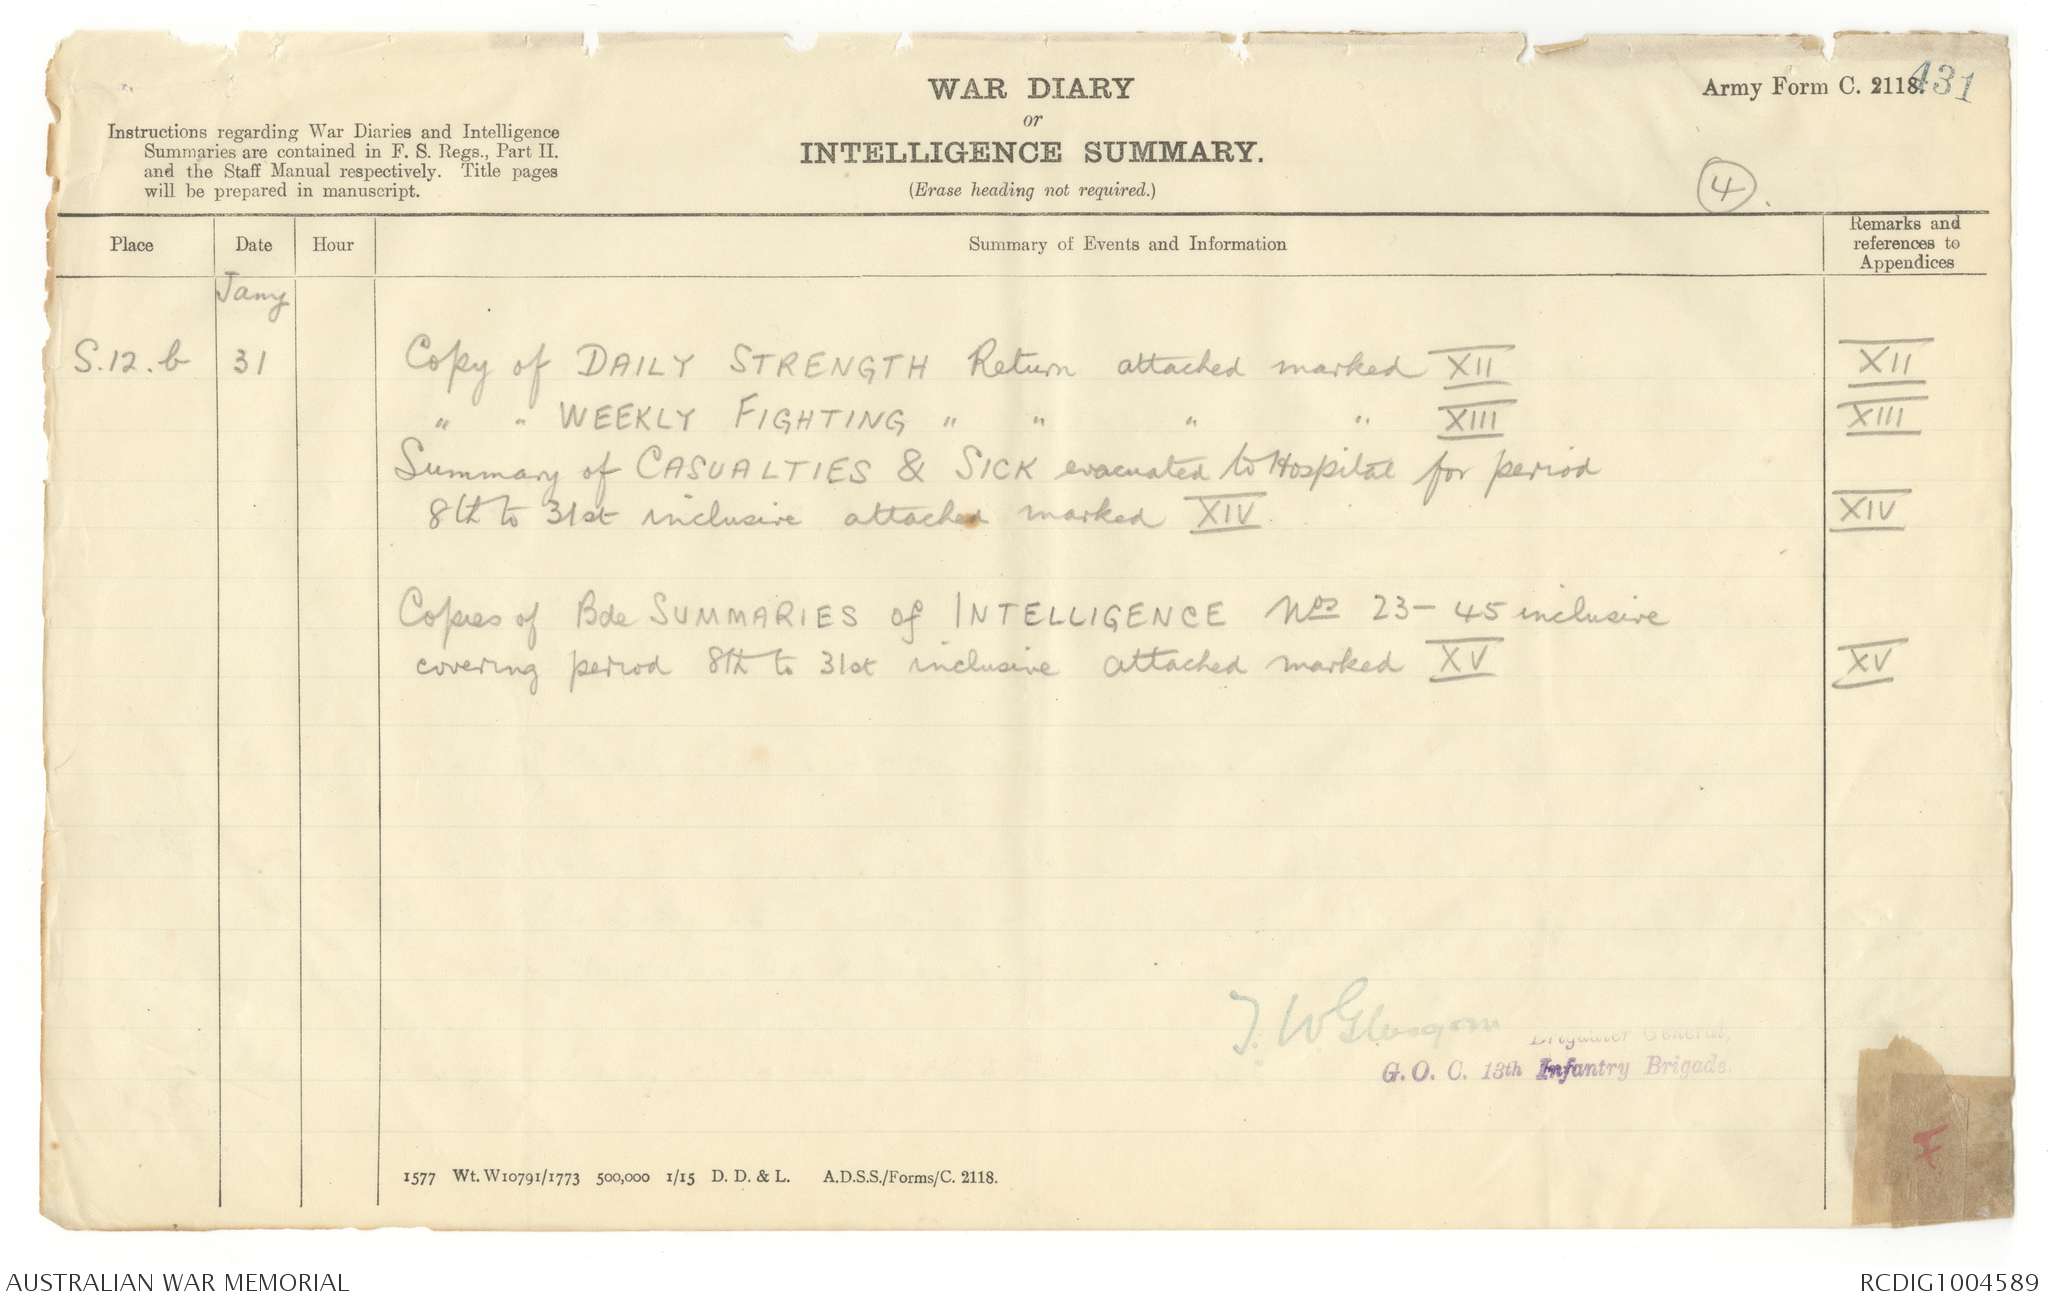 WAR DIARY
or
INTELLIGENCE SUMMARY.
(Erase heading not required.)
Army Form C. 2118.
431
Instructions regarding War Diaries and Intelligence
Summaries are contained in F. S. Regs., Part II.
and the Staff Manual respectively. Title pages
will be prepared in manuscript.
4
Place Date Hour Summary of Events and Information Remarks and references to Appendices
Jany
S.12.b 31 Copy of DAILY STRENGTH Return attached marked XII XII
" " WEEKLY FIGHTING " " " " XIII XIII
Summary of CASUALTIES & SICK evacuated to Hospital for period
8th to 31st inclusive attached marked XIV XIV
Copies of Bde SUMMARIES of INTELLIGENCE Nos 23-45 inclusive
covering period 8th to 31st inclusive attached marked XV XV
T. W Glasgow
Brigadier General,
G. O. C. 13th Infantry Brigade.
1577 Wt. W10791/1773 500,000 1/15 D. D. & L. A.D.S.S./Forms/C. 2118.
AUSTRALIAN WAR MEMORIAL
RCDIG1004589